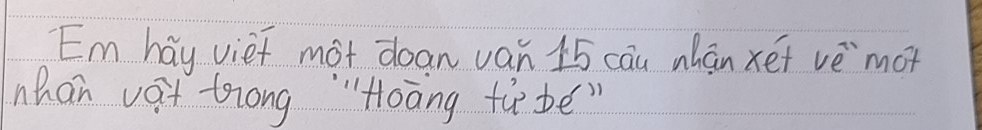 Em hãy viết một đoạn văn 15 câu nhận xét về một
nhân vật trong "Hoàng tử bé"